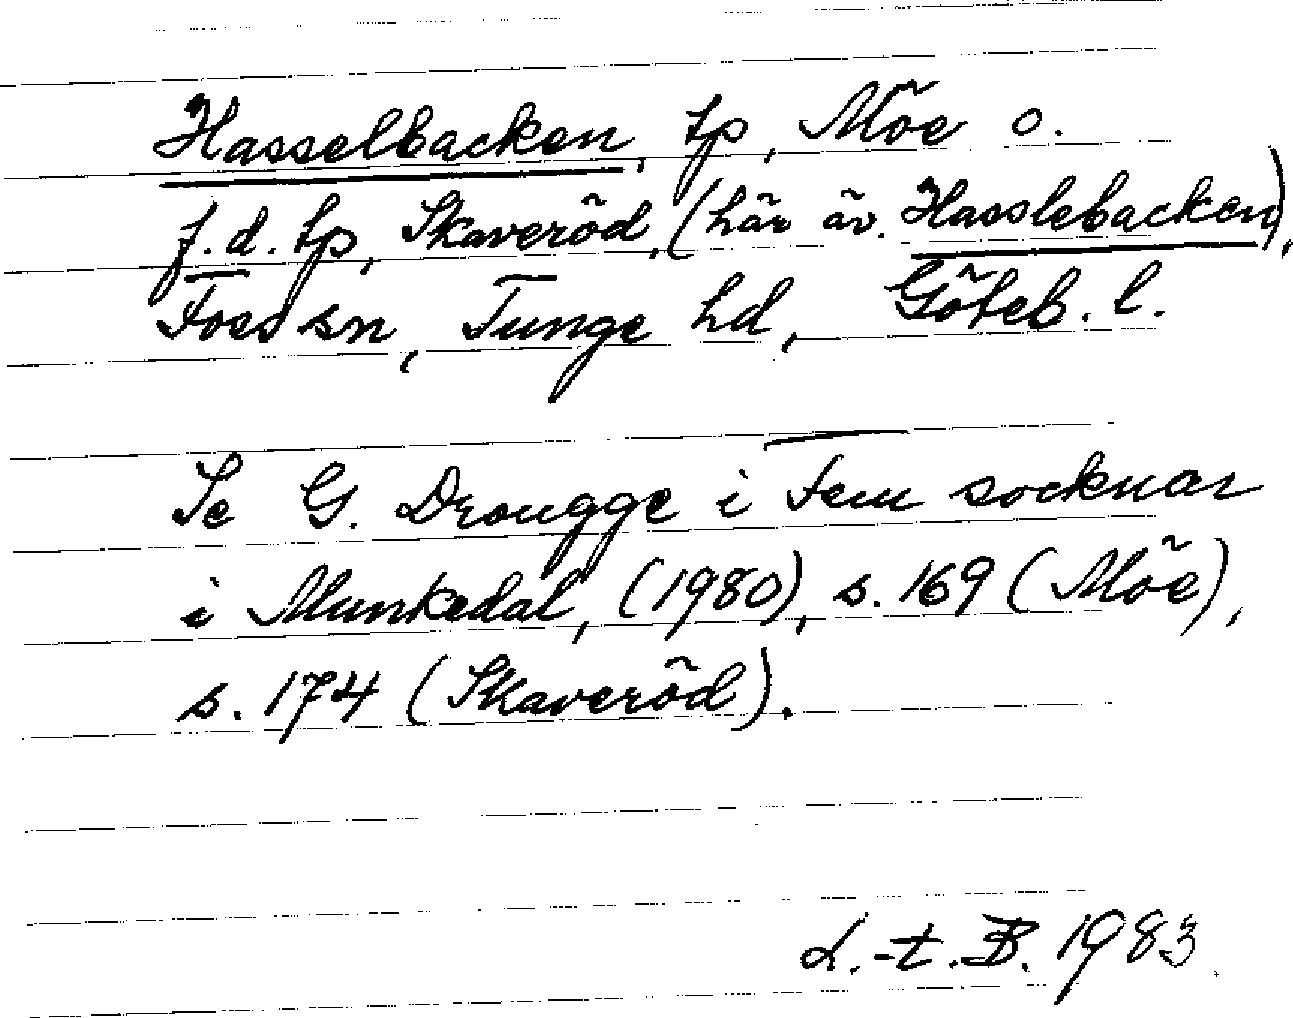 Hasselbacken, tp, Möe o.
f.d. tp, Skaveröd, (här äv. Hasslebacken),
Foss sn, Tunge hd, Göteb. l.
Se G. Drougge i Fem socknar
i Munkedal, (1980), s. 169 (Möe),
s. 174 (Skaveröd).
L.-t. B. 1983.